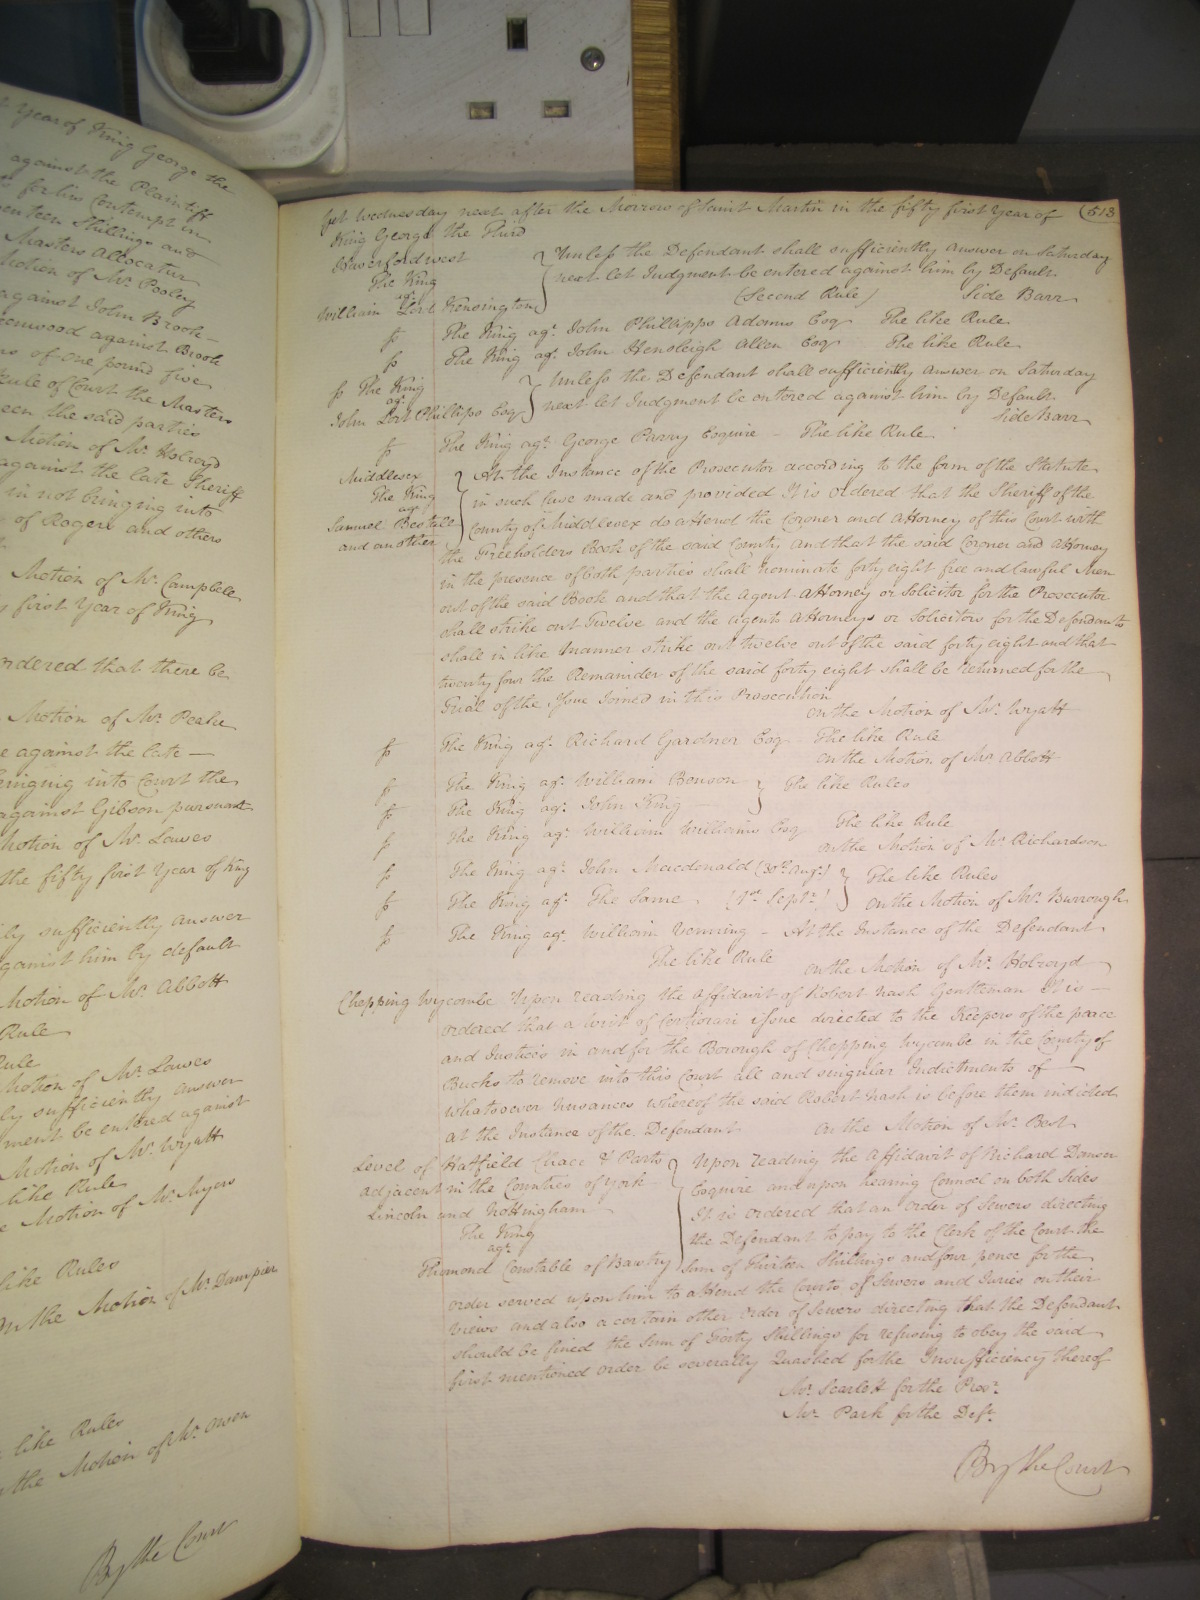 Year of King George the
against the Plaintiff
for his Contempt in
Shillings and
Masters Allocatur
Motion of Mr. Pooley
against John Brook
against Brook
of one pound five
Rule of Court the Masters
the said parties
Motion of Mr. Holroyd
against the late Sheriff
in not bringing into
of Rogers and others
Motion of Mr. Campbell
first Year of King
ordered that there be
Motion of Mr. Peake
against the late
bringing into Court the
against Gibson pursuant
Motion of Mr. Lawes
the fifty first Year of King
sufficiently answer
against him by default
Motion of Mr. Abbott
Rule
Rule
Motion of Mr. Lawes
sufficiently answer
be entered against
Motion of Mr. Wyatt
like Rule
Motion of Mr. Myers
like Rules
On the Motion of Mr. Dampier
like Rules
the Motion of Mr. Owen
By the Court
Wednesday next after the Morrow of Saint Martin in the fifty first Year of (513
King George the Third
Haverfordwest
The King
agt.
William Lord Kensington
Unless the Defendant shall sufficiently answer on Saturday
next let Judgment be entered against him by Default
(Second Rule) Side Barr
The King agt. John Phillipps Adams Esq The like Rule
The King agt. John Hensleigh Allen Esq The like Rule
The King
agt.
John Lort Phillips Esq
Unless the Defendant shall sufficiently answer on Saturday
next let Judgment be entered against him by Default
Side Barr
The King agt. George Parry Esquire - The like Rule
Middlesex
The King
agt.
Samuel
and another
At the Instance of the Prosecutor according to the form of the Statute
in such Case made and provided It is ordered that the Sheriff of the
County of Middlesex do attend the Coroner and Attorney of this Court with
the Freeholders Book of the said County and that the said Coroner and Attorney
in the presence of both parties shall nominate forty eight free and lawful Men
out of the said Book and that the Agent Attorney or Solicitor for the Prosecutor
shall strike out Twelve and the Agents Attorneys or Solicitors for the Defendants
shall in like Manner strike out twelve out of the said forty eight and that
twenty four the Remainder of the said forty eight shall be returned for the
Trial of the Issue Joined in this Prosecution
on the Motion of Mr. Wyatt
The King agt. Richard Gardner Esq The like Rule
on the Motion of Mr Abbott
The King agt. William Benson
The King agt. John King
The like Rules
The King agt. William Williams Esq The like Rule
on the Motion of Mr. Richardson
The King agt. John Macdonald (30th Augt.)
The King agt. The Same (1st Septr.)
The like Rules
on the Motion of Mr. Burrough
The King agt. William - At the Instance of the Defendant
The like Rule
on the Motion of Mr. Holroyd
Chepping Wycombe Upon reading the Affidavit of Robert Nash Gentleman It is
ordered that a Writ of Certiorari issue directed to the Keepers of the peace
and Justices in and for the Borough of Chepping Wycombe in the County of
Bucks to remove into this Court all and singular Indictments of
whatsoever Nusances whereof the said Robert Nash is before them indicted
at the Instance of the Defendant on the Motion of Mr. Best
Level of Hatfield Chace & Parts
adjacent in the Counties of York
Lincoln and Nottingham
The King
agt.
Constable of Bawtry
Upon reading the Affidavit of Richard
Esquire and upon hearing Counsel on both Sides
It is ordered that an Order of Sewers directing
the Defendant to pay to the Clerk of the Court the
Sum of Thirteen Shillings and four pence for the
order served upon him to attend the Courts of Sewers and Juries on their
Views and also a certain other Order of Sewers directing that the Defendant
should be fined the Sum of Forty Shillings for refusing to obey the said
first mentioned Order be severally Quashed for the Insufficiency thereof
Mr. Scarlett for the Prosr.
Mr. Park for the Deft.
By the Court